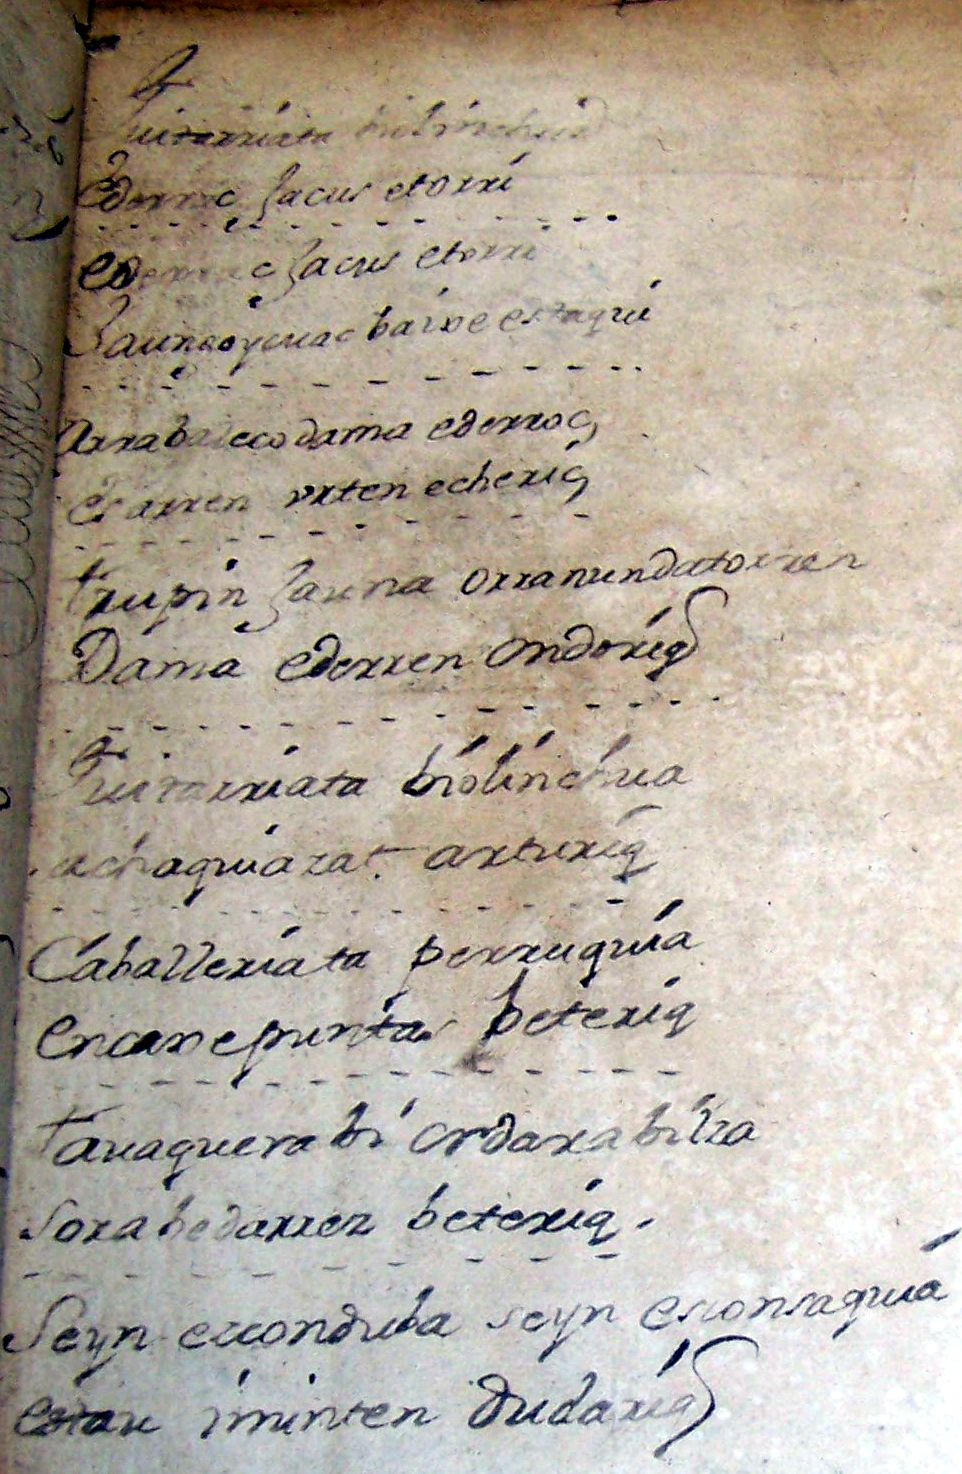 Guitarriata biolinchua
Ederrac Jacus etorri
Ederrac Jacus etorri
Jaungoycuac baixe estaqui
Arrabaleco dama ederroc,
esarren urten echeriq
trupin Jauna orra nundatorren
Dama ederren ondoriq
Guitarriata biolinchua
achaquiazat arturiq
Caballeriata perruquia
encanepuntas beteriq
tauaquera bi ordarabilza
sorabedarrez beteriq.
Seyn esconduba seyn esconsaquia
estau iminten dudariq